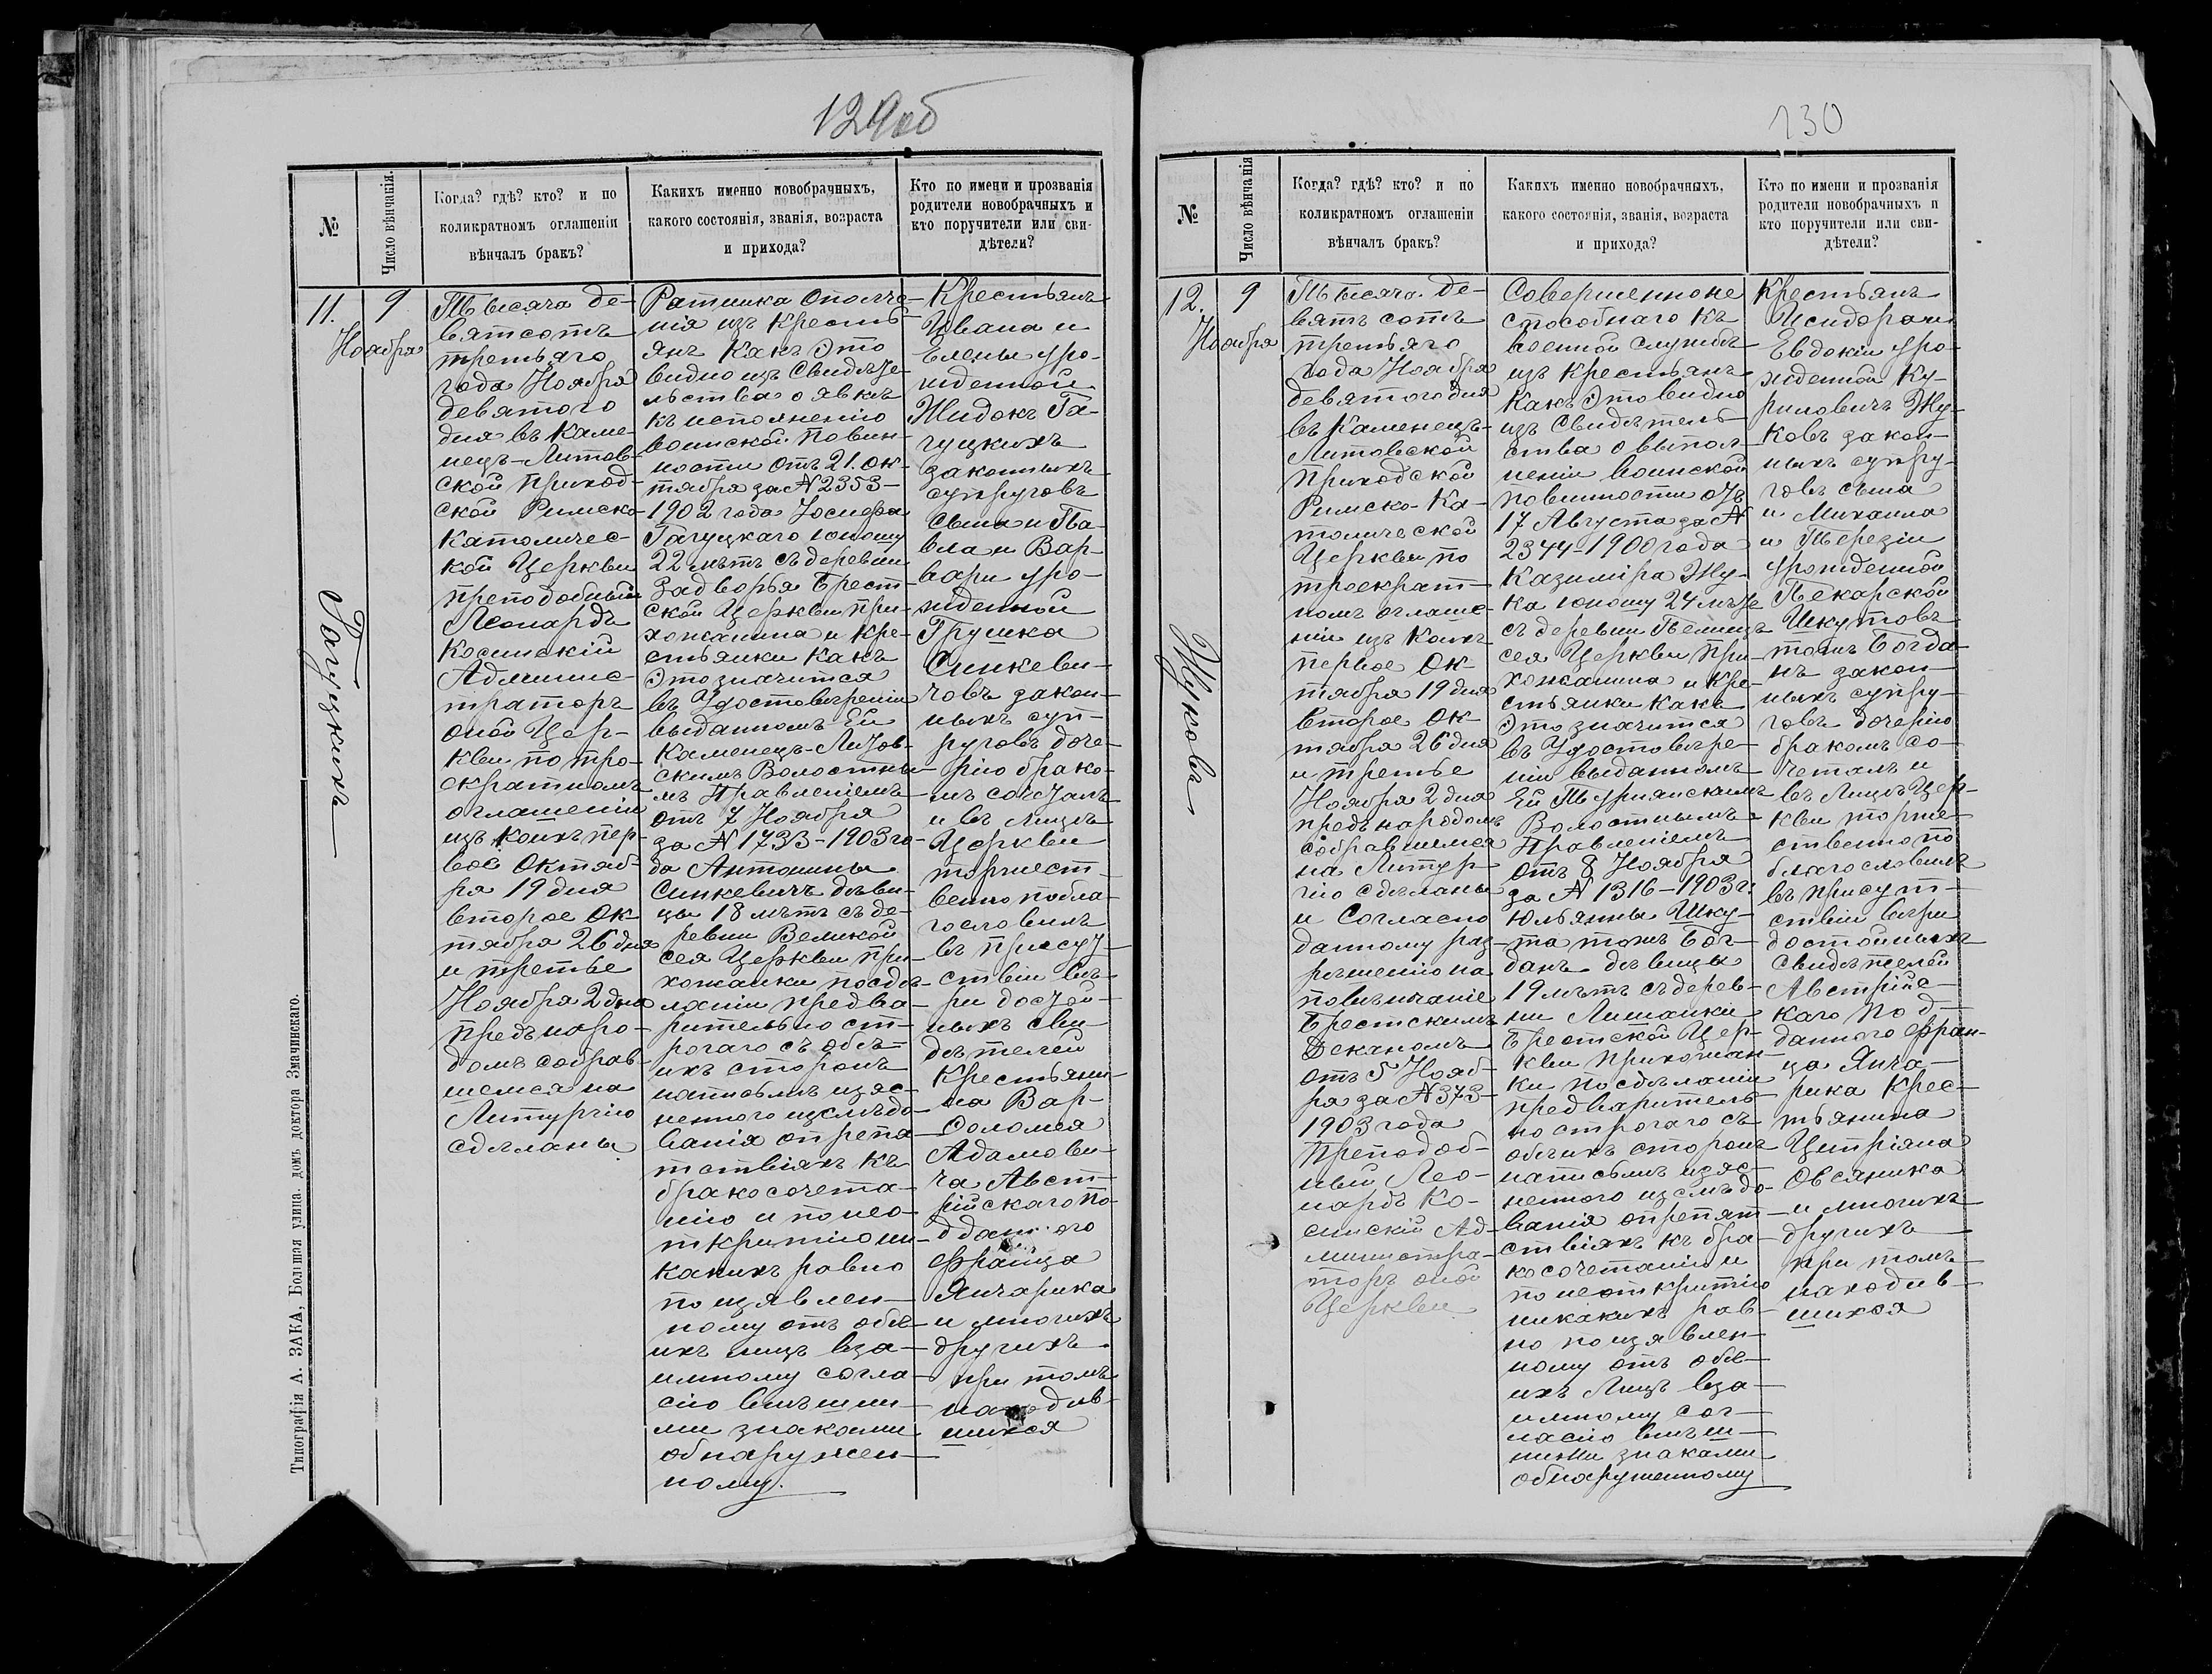 129об
№
Число вѣнчанія.
Когда? гдѣ? кто? и по
коликратномъ оглашеніи
вѣнчалъ бракъ?
Какихъ именно новобрачныхъ,
какого состоянія, званія, возраста
и прихода?
Кто по имени и прозванія
родители новобрачныхъ и
кто поручители или сви-
дѣтели?
11.
9
Ноября
Гагуцкихъ
Тысяча де-
вятсотъ
третьяго
года Ноября
девятого
дня въ Каме-
нецъ-Литов-
ской приход-
ской Римско-
Католичес-
кой Церкви
преподобный
Леонардъ
Косинскій
Админис-
траторъ
оной Цер-
кви по тро-
екратномъ
оглашеніи
изъ коихъ пер-
вое Октяб-
ря 19 дня
второе Ок
тября 26 дня
и третье
Ноября 2 дня
предъ наро-
домъ собрав-
шемся на
Литургію
сдѣланы
Ратника ополче-
нія изъ крестъ
янъ какъ это
видно изъ Свидѣте-
льства о явкѣ
къ исполненію
воинской повин-
ности отъ 21. ок-
тября за № 2353-
1902 года Іосифа
Гагуцкаго юношу
22 лѣтъ съ деревни
Задворья Брест-
ской Церкви при-
хожанина и кре-
стьянки какъ
это значится
въ Удостовѣреніи
выданномъ Ей
Каменецъ-Литов-
скимъ Волостны-
мъ Правленіемъ
отъ 7 Ноября
за № 1733-1903 го-
да Антонины
Синкевичъ дѣви-
цы 18 лѣтъ съ де-
ревни Великой
сея Церкви при-
хожанки по сдѣ-
ланіи предва-
рительно ст-
рогаго съ обѣ-
ихъ сторонъ
написьмъ изяс-
неннаго изслѣдо-
ванія опрепя-
тствіяхъ къ
бракосочета-
нію и по нео-
ткритію ни-
какихъ равно
по изявлен-
ному отъ обѣ-
ихъ лицъ вза-
имному согла-
сію внѣшни-
ми знаками
обнаружен-
ному.
Крестьянъ
Ивана и
Елены уро-
жденной
Жидокъ Га-
гуцкихъ
законныхъ
супруговъ
сына и Па-
вла и Вар-
вари уро-
жденной
Грушка
Синкеви-
човъ закон-
ныхъ суп-
руговъ доче-
рію брако-
мъ сочеталъ
и въ лицѣ
Церкви
торжест-
венно побла-
гословилъ
въ присут-
ствіи вѣ-
ри достой-
ныхъ сви-
дѣтелей
Крестьяни-
на Вар-
соломея
Адамови-
ча Авст-
рійскаго по-
дданного
Франца
Янчарика
и многихъ
другихъ
при томъ
находив-
шихся
Типографія А. ЗАКА, Большая улица. домъ доктора Змачинскаго.
130
№
Число вѣнчанія
Когда? гдѣ? кто? и по
коликратномъ оглашеніи
вѣнчалъ бракъ?
Какихъ именно новобрачныхъ,
какого состоянія, званія, возраста
и прихода?
Кто по имени и прозванія
родители новобрачныхъ и
кто поручители или сви-
дѣтели?
12.
9
Ноября
Жуковъ
Тысяча де-
вятъ сотъ
третьяго
года Ноября
девятого дня
въ Каменецъ-
Литовской
приходской
Римско-Ка-
толической
Церкви по
троекрат-
номъ оглаше-
ніи изъ коихъ
первое Ок
тября 19 дня
второе Ок
тября 26 дня
и третье
Ноября 2 дня
предъ народомъ
собравшемся
на Литур-
гію сдѣланы
и согласно
данному раз-
рѣшенію на
повѣнчаніе
Брестскимъ
Деканомъ
отъ 5 Нояб-
ря за № 373-
1903 года
преподоб-
ный Лео-
нардъ Ко-
синскій Ад-
министра-
торъ оной
Церкви
Совершенно не
способнаго къ
военной службѣ
изъ крестьянъ
какъ это видно
изъ Свидѣтель-
ства о выпол-
неніи воинской
повинности отъ
17 Августа за №
2344-1900 года
Казиміра Жу-
ка юношу 24 лѣтъ
съ деревни Пелищъ
сея Церкви при-
хожанина и кре-
стьянки какъ
это значится
въ Удостовѣре-
ніи выданномъ
Ей Турнянскимъ
Волостнымъ
Правленіемъ
отъ 8 Ноября
за № 1316-1903 г.
Юльянны Шку-
та тожъ Бог-
данъ дѣвицы
19 лѣтъ съ дерев-
ни Лишанки
Брестской Цер-
кви прихожан-
ки по сдѣланіи
предваритель-
но строгаго съ
обѣихъ сторонъ
написьмъ изяс-
неннаго изслѣдо-
ванія опрепят-
ствіяхъ къ бра-
косочетанію и
по неоткритію
никакихъ рав-
но по изявлен-
ному отъ обѣ-
ихъ лицъ вза-
имному сог-
ласію внѣш-
ними знаками
обнаруженному
Крестьянъ
Исидора и
Евдокіи уро-
жденной Ку-
риловичъ Жу-
ковъ закон-
ныхъ супру-
говъ сына
и Михаила
и Терезіи
урожденной
Пекарской
Шкутовъ
тожъ Богда-
нъ закон-
ныхъ супру-
говъ дочерію
бракомъ со-
четалъ и
въ лицѣ Цер-
кви торже-
ственно по
благословилъ
въ присут-
ствіи вѣри
достойныхъ
свидѣтелей
Австрійс-
каго под-
данного Фран-
ца Янча-
рика Крес-
тьянина
Циприяна
Овсяника
и многихъ
другихъ
при томъ
находив-
шихся